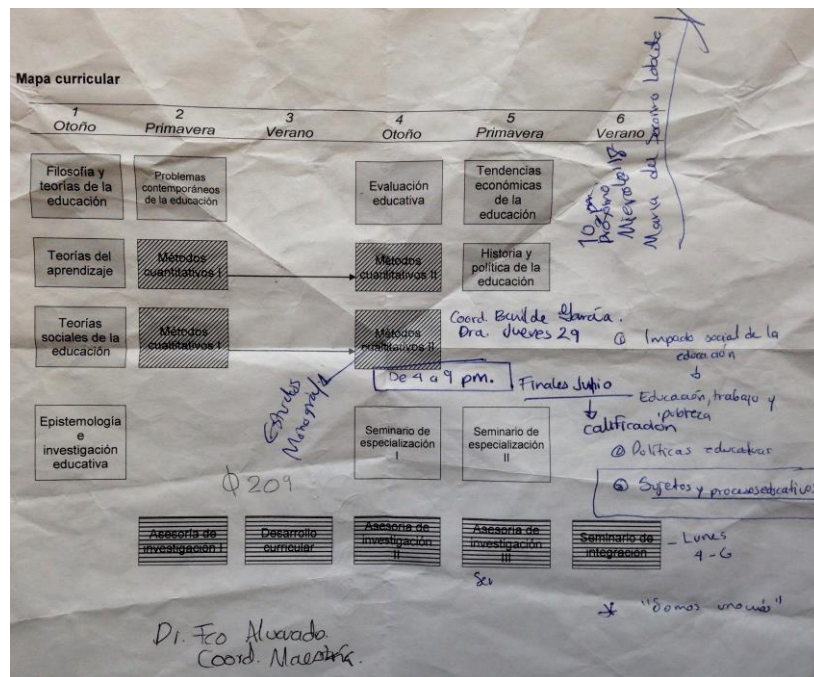 Mapa curricular
1 2 3 4 5 6
Otoño Primavera Verano Otoño Primavera Verano
Filosofía y
teorías de la
educación
Problemas
contemporáneos
de la educación
Evaluación
educativa
Tendencias
económicas
de la
educación
Teorías del
aprendizaje
Métodos
cuantitativos I
Métodos
cuantitativos II
Historia y
política de la
educación
Teorías
sociales de la
educación
Métodos
cualitativos I
Métodos
cualitativos II
Epistemología
e
investigación
educativa
Seminario de
especialización
I
Seminario de
especialización
II
Asesoría de
investigación I
Desarrollo
curricular
Asesoría de
investigación
II
Asesoría de
investigación
III
Seminario de
integración
10 pm
próximo
María del
Coord. García.
Dra. Jueves 29
De 4 a 9 pm.
Finales Junio
calificación
Impacto social de la
educación
Educación, trabajo y
pobreza
Políticas educativas
Sujetos y procesos educativos
Estudios
209
- Lunes
4-6
Dr. Fco Alvarado.
Coord. Maestría.